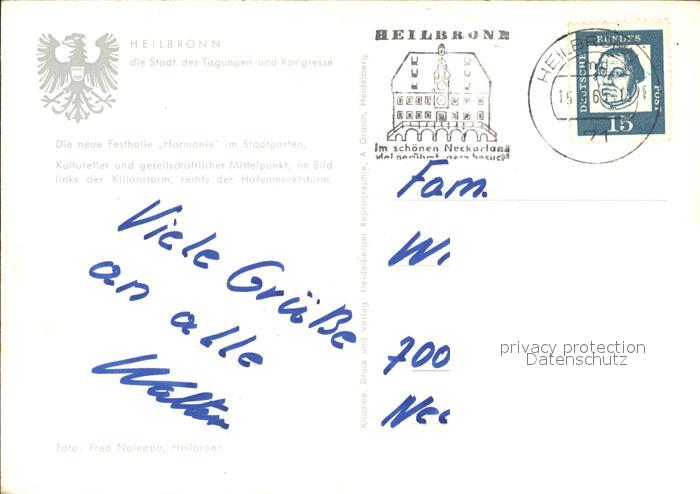 HEILBRONN
die Stadt der Tagungen und Kongresse
Die neue Festhalle „Harmonie" im Stadtgarten.
Kultureller und gesellschaftlicher Mittelpunkt. Im Bild
links der Kiliansturm, rechts der Hafenmarktsturm.
Viele Grüße
an alle
Walter
Foto: Fred Naleppa, Heilbronn
Klischee, Druck und Verlag: Heidelberger Reprographie, A. Grosch, Heidelberg
HEILBRONN
Im schönen Neckarland
viel gerühmt, gern besucht
HEILBRONN
71
DEUTSCHE BUNDES POST
15
Fam.
700
privacy protection
Datenschutz